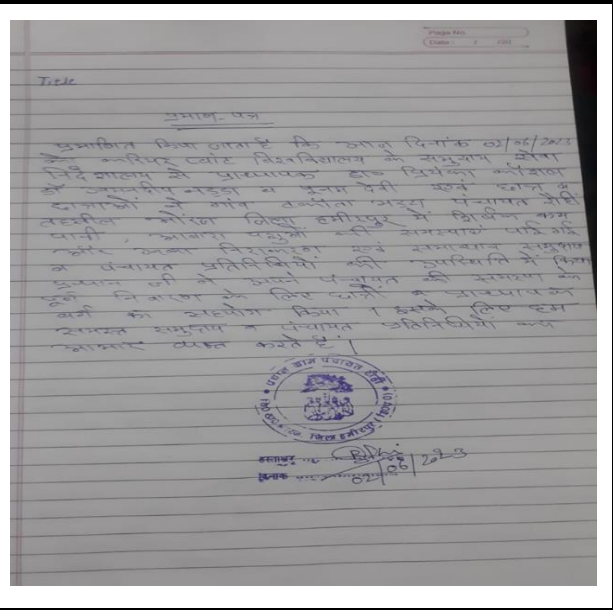 Page No.
Date : / /20
Title
प्रमाण-पत्र
प्रमाणित किया जाता है कि आज दिनांक 02/06/2023
को करियर प्वांट विश्वविद्यालय के समुदाय सेवा
निदेशालय से प्राध्यापक डा० प्रियंका कौशल
व पूनम देवी एवं छात्र व
छात्राओं ने गांव पंचायत
तहसील जिला हमीरपुर में कम
पानी , आवारा पशुओं की समस्याएं पाई गई
और उनका निराकरण एवं समाधान समुदाय
व पंचायत प्रतिनिधियों की उपस्थिति में किया
प्रधान जी ने अपने पंचायत की समस्या के
निवारण के लिए छात्रों व प्राध्यापक
वर्ग का सहयोग किया । इसके लिए हम
समस्त समुदाय व पंचायत प्रतिनिधियों का
आभार व्यक्त करते हैं |
ग्राम पंचायत
जिला हमीरपुर
हस्ताक्षर
दिनांक 02/06/2023